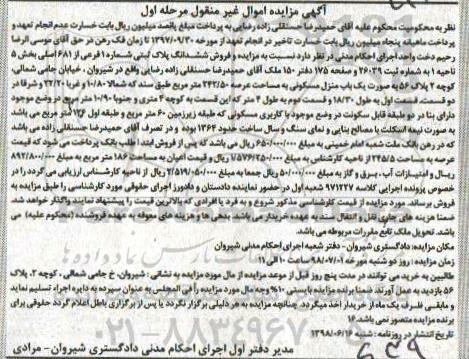 آگهی مزایده اموال غیر منقول مرحله اول
نظر به محکومیت محکوم علیه آقای حمیدرضا حسنقلی زاده رضایی به پرداخت مبلغ پانصد میلیون ریال بابت خسارت عدم انجام تعهد و
پرداخت ماهیانه پنجاه میلیون ریال بابت خسارت تاخیر در انجام تعهد از مورخه ۱۳۹۷/۰۹/۳۰ تا زمان فک رهن در حق آقای موسی الرضا
رحیم دخت واحد اجرای احکام مدنی در نظر دارد نسبت به مزایده و فروش ششدانگ پلاک ثبتی شماره ۱ فرعی از ۶۸۱ اصلی بخش ۵
ناحیه ۱ به شماره ثبت ۲۶۰۳۹ و صفحه ۱۷۵ دفتر ۱۵۰ ملک آقای حمیدرضا حسنقلی زاده رضایی واقع در شیروان، خیابان جامی شمالی،
کوچه ۲ پلاک ۵۶ به صورت یک باب منزل مسکونی به مساحت عرصه ۲۴۲/۵۰ متر مربع که شمالا ۱۰/۸۰ و غربا ۲۲/۲۰ و شرقا در
دو قسمت، قسمت اول به طول ۱۸/۳۰ و قسمت دوم به طول ۴ متر که این قسمت به کوچه ۴ متری و جنوبا ۱۰/۹۰ متر در وضع موجود
دارای بنا در دو طبقه قابل سکونت در وضع موجود با کاربری مسکونی که طبقه زیرزمین ۶۰ متر مربع و طبقه اول ۱۲۶ متر مربع می باشد
به صورت نیمه اسکلت با مصالح بنایی و نمای سنگ و سال ساخت حدود ۱۳۶۴ بوده و در تصرف آقای حمیدرضا حسنقلی زاده می باشد
که در رهن بانک ملت شعبه امام خمینی به مبلغ ۶۵۰/۰۰۰/۰۰۰ ریال می باشد که پس از فروش ابتدا طلب بانک پرداخت می شود که قیمت
عرصه به مساحت ۲۴۲/۵ از ناحیه کارشناس به مبلغ ۱/۵۷۶/۲۵۰/۰۰۰ ریال و قیمت اعیان به مساحت ۱۸۶ متر مربع به مبلغ ۸۹۲/۸۰۰/۰۰۰
ریال و امتیازات آب، برق و گاز به مبلغ ۵۰/۰۰۰/۰۰۰ ریال جمعا به مبلغ ۲/۵۱۹/۰۵۰/۰۰۰ ریال از ناحیه کارشناس ارزیابی می گردد را در
خصوص پرونده اجرایی کلاسه ۹۷۱۲۲۷ شعبه اول در حضور نماینده دادستان و دادورز اجرای حقوقی مورد کارشناسی را طبق مزایده به
فروش برساند. مورد مزایده از قیمت کارشناسی مذکور شروع و به فرد یا افرادی که بالاترین قیمت را پیشنهاد نمایند واگذار خواهد شد.
ضمنا هزینه های جلوی نقل و انتقال سند به عهده خریدار می باشد. بدهی ها و هزینه های معوقه به عهده فروشنده (محکوم علیه) می
باشد. تحویل ملک تابع مقررات مربوطه می باشد.
مکان مزایده: دادگستری شیروان- دفتر شعبه اجرای احکام مدنی شیروان
زمان مزایده: روز دو شنبه مورخه ۹۸/۰۷/۰۱ ساعت ۱۰ الی ۱۱
طالبین به خرید می توانند در مدت پنج روز قبل از موعد مزایده از مال مورد مزایده به نشانی: شیروان، خ جامی شمالی، کوچه ۲، پلاک
۵۶ بازدید به عمل آورند. ضمنا برنده مزایده بایستی ۱۰٪ وجه مال مورد مزایده را فی المجلس به عنوان سپرده به دایره اجراء تسلیم نماید
و مابقی ظرف یک ماه از خریدار اخذ میگردد. چنانچه مزایده به هر دلیلی برگزار نگردد یا پس از برگزاری باطل اعلام گردد حقوقی برای
برنده مزایده متصور نمی باشد. ۱۶
تاریخ انتشار در روزنامه: شنبه ۱۳۹۸/۰۶/۱۶
مدیر دفتر اول اجرای احکام مدنی دادگستری شیروان- مرادی
۰۲۱-۸۸۳۴۹۶۷۰